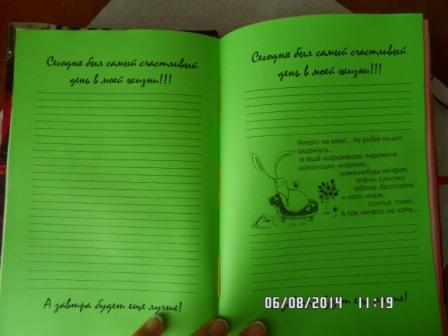 Сегодня был самый счастливый
день в моей жизни!!!
А завтра будет еще лучше!
Сегодня был самый счастливый
день в моей жизни!!!
Ничего не хочу!... Ну разве только
отдохнуть...
а ещё мороженое, пирожное,
шоколадку, мартини...
какие-нибудь конфет,
туфли, сумочку,
юбочку, браслетик
и лето, море,
солнце, пляж...
А так ничего не хочу...
будет еще лучше!
06/08/2014 11:19